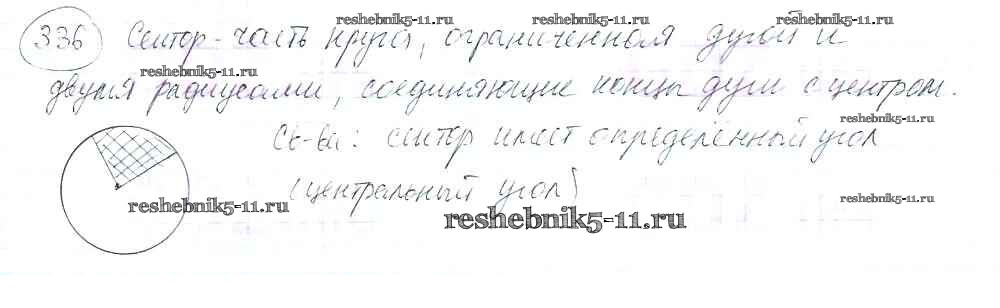 336 Сектор - часть круга, ограниченная дугой и
двумя радиусами, соединяющие концы дуги с центром.
Св-ва: сектор имеет определённый угол
(центральный угол)
reshebnik5-11.ru
reshebnik5-11.ru
reshebnik5-11.ru
reshebnik5-11.ru
reshebnik5-11.ru
reshebnik5-11.ru
reshebnik5-11.ru
reshebnik5-11.ru
reshebnik5-11.ru